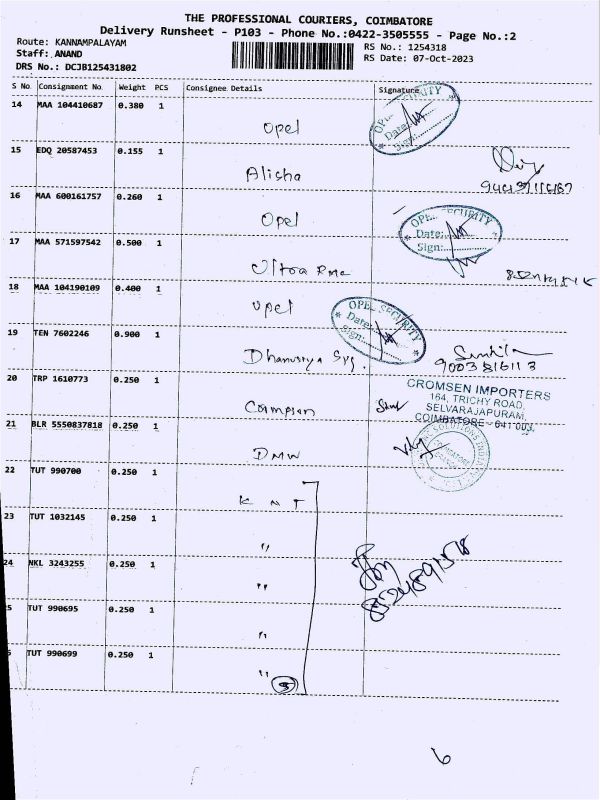 THE PROFESSIONAL COURIERS, COIMBATORE
Delivery Runsheet - P103 - Phone No.:0422-3505555 - Page No.:2
Route: KANNAMPALAYAM
Staff: ANAND
DRS No.: DCJB125431802
RS No.: 1254318
RS Date: 07-Oct-2023
S No Consignment No Weight PCS Consignee Details Signature
14 MAA 104410687 0.380 1
Opel
SECURITY
Date:
Sign:
15 EDQ 20587453 0.155 1
Alisha
16 MAA 600161757 0.260 1
Opel
SECURITY
Date:
Sign:
17 MAA 571597542 0.500 1
18 MAA 104190109 0.400 1
Opel
OPEL SECURITY
Date:
Sign:
19 TEN 7602246 0.900 1
20 TRP 1610773 0.250 1
CROMSEN IMPORTERS
164, TRICHY ROAD,
SELVARAJAPURAM,
COIMBATORE - 641 003.
21 BLR 5550837818 0.250 1
DMW
22 TUT 990700 0.250 1
KNT
23 TUT 1032145 0.250 1
"
24 NKL 3243255 0.250 1
"
5 TUT 990695 0.250 1
"
TUT 990699 0.250 1
"
5
6